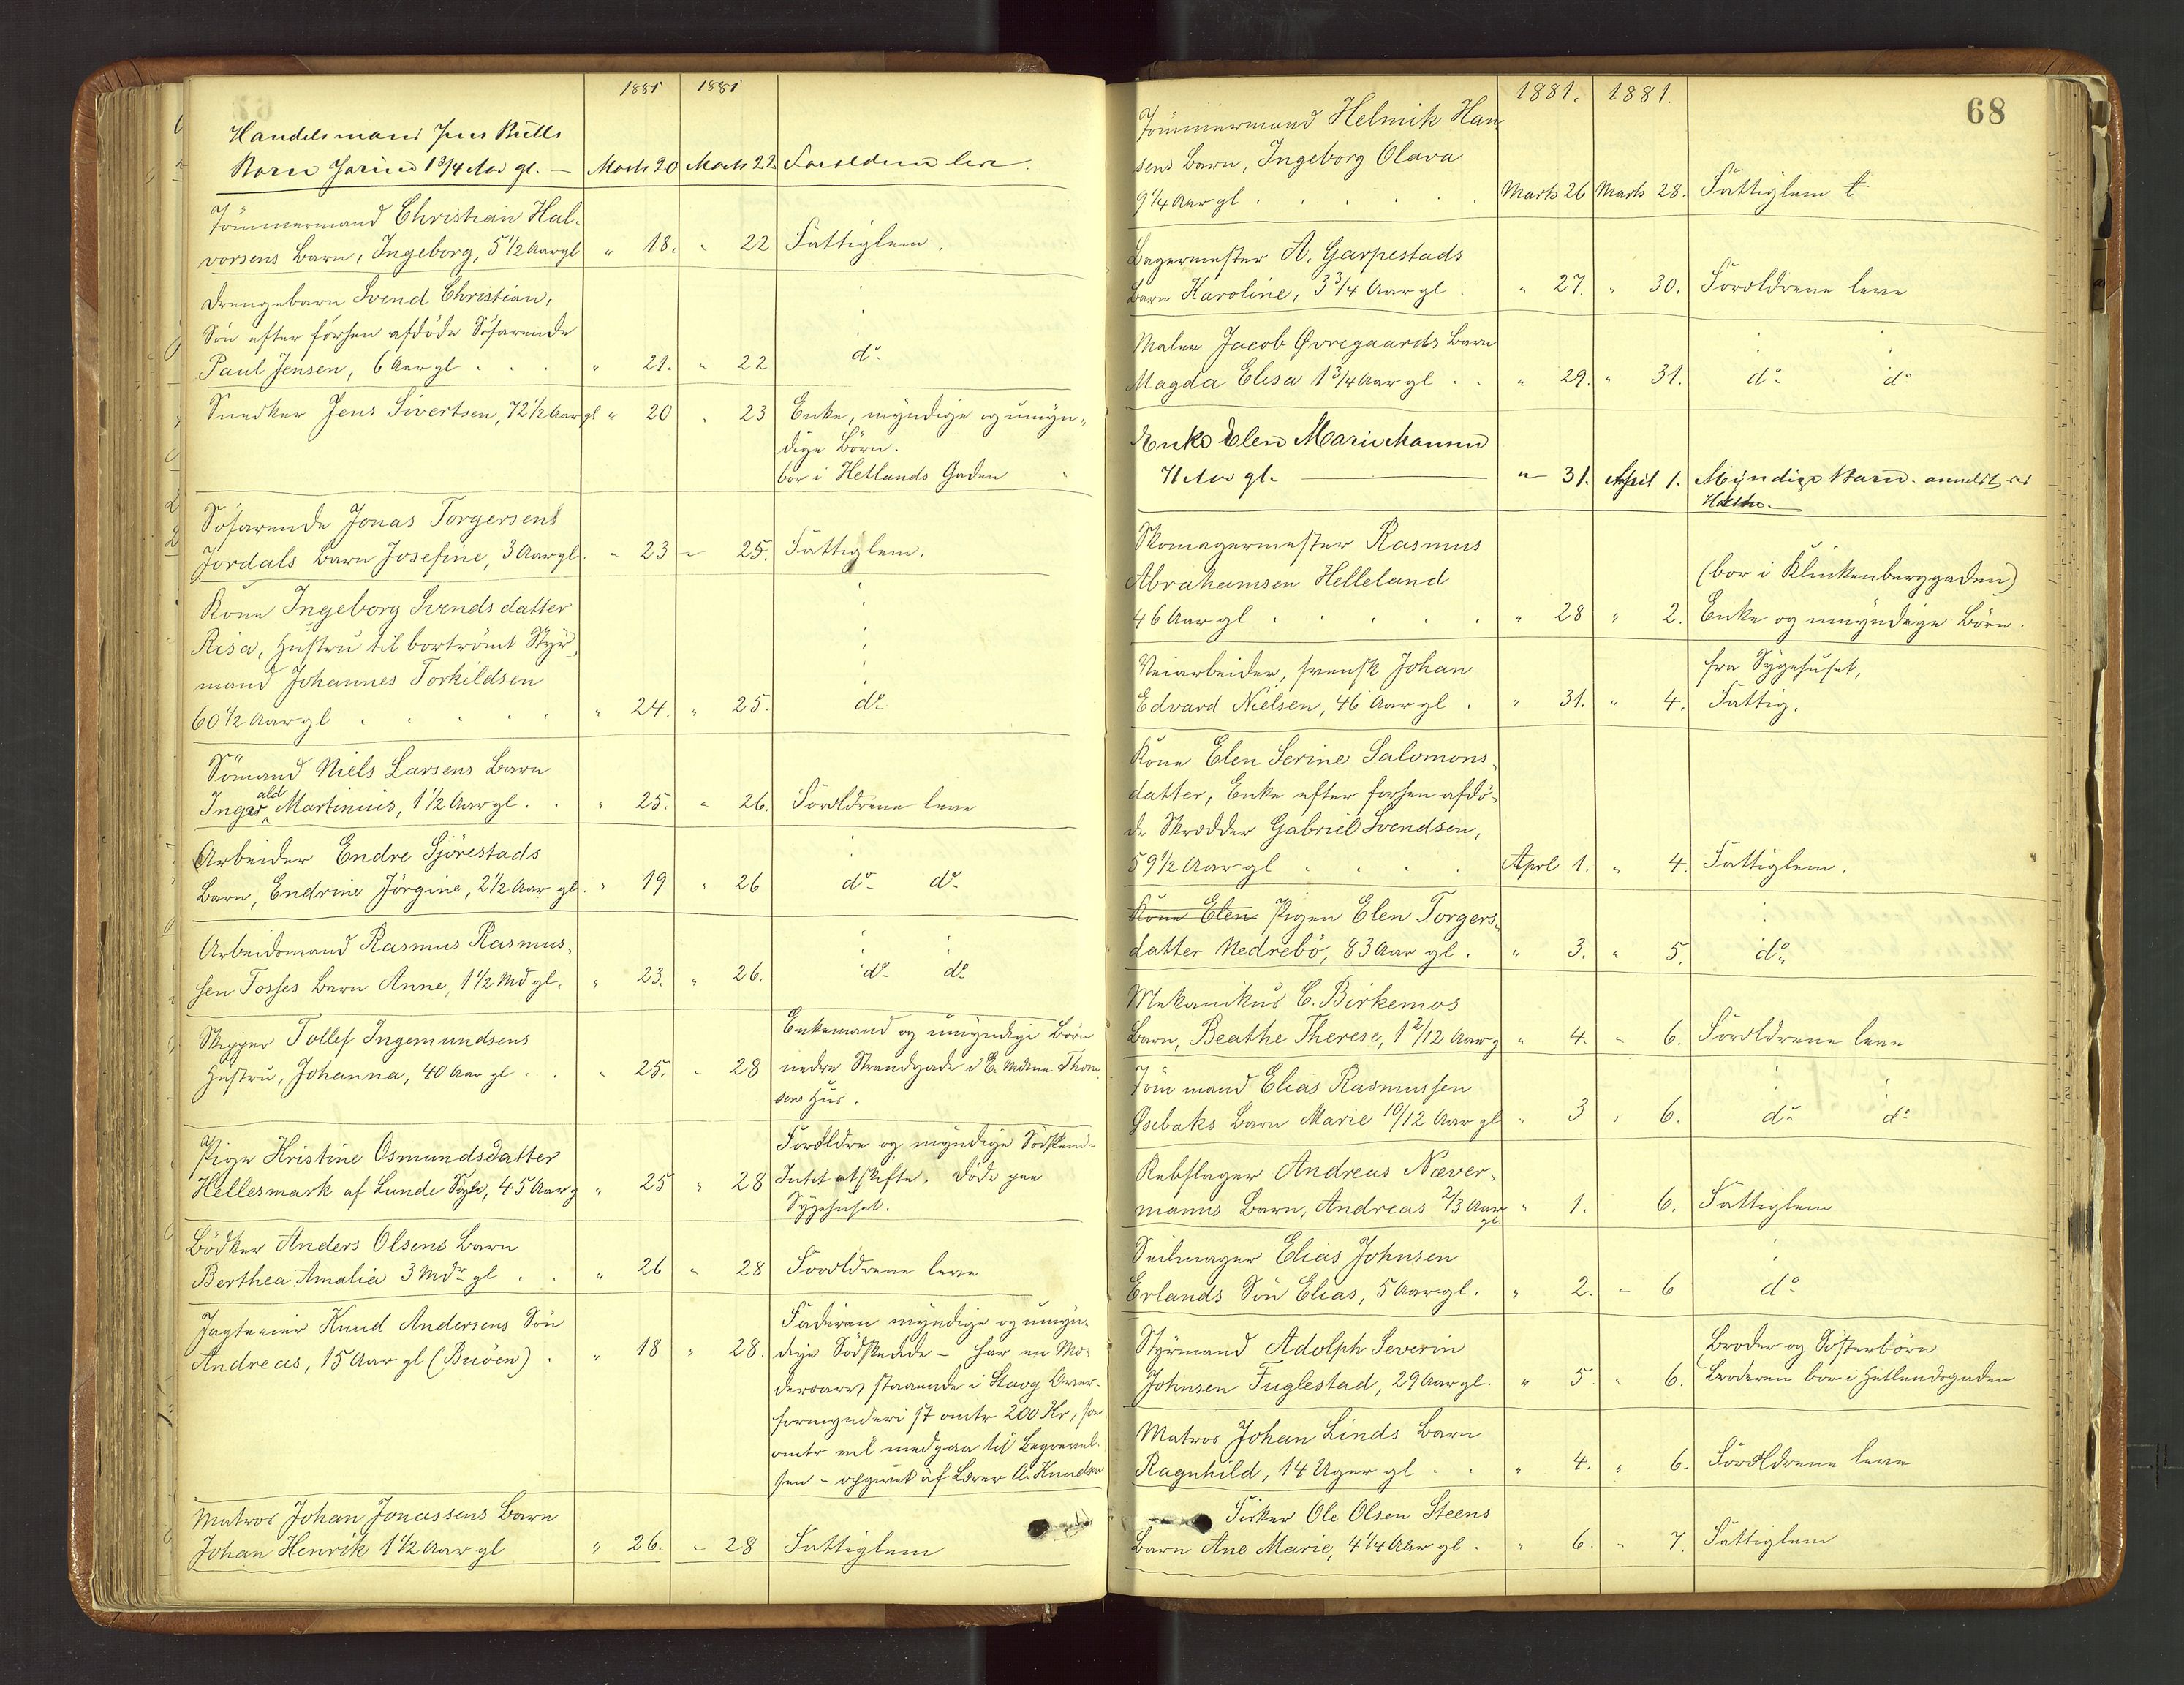 1881 1881
Handelsmand Jens Bulls
Barn 1 3/4 Aar gl. — Marts 20 Marts 22 Forældrene leve
Tömmermand Christian Hal-
vorsens Barn, Ingeborg, 5 1/2 Aar gl " 18. " 22 Fattiglem.
Drengebarn Svend Christian,
Sön efter forhen afdöde Söfarende
Paul Jensen, 6 Aar gl . . . " 21. " 22 do
Snedker Jens Sivertsen, 72 1/2 Aar gl " 20 " 23 Enke, myndige og umyn-
dige Börn.
bor i Hetlands Gaden
Söfarende Jonas Torgersens
Jordals Barn Josefine, 3 Aar gl. " 23 " 25. Fattiglem.
Kone Ingeborg Svendsdatter
Risa, Hustru til bortrömt Styr-
mand Johannes Torkildsen
60 1/2 Aar gl . . . . . " 24. " 25. do
Sömand Niels Larsens Barn
ald
Inger Martinius, 1 1/2 Aar gl. . " 25. " 26. Forældrene leve
Arbeider Endre Sjörestads
Barn, Endrine Jörgine, 2 1/2 Aar gl. " 19 " 26 do do
Arbeidsmand Rasmus Rasmus-
sen Fosses Barn Anne, 1 1/2 Md gl. " 23. " 26. do do
Skipper Tollef Ingemundsens
Hustru, Johanna, 40 Aar gl . . " 25. " 28 Enkemand og umyndige Börn
nedre Strandgade i E. Thom-
sens Hus.
Pige Kristine Osmundsdatter
Hellesmark af Lunde Sogn, 45 Aar g " 25 " 28 Forældre og myndige Södskende
Intet at skifte. Döde paa
Sygehuset.
Bödker Anders Olsens Barn
Berthea Amalia 3 Mdr gl . . " 26 " 28 Forældrene leve
Jagteeier Knud Andersens Sön
Andreas, 15 Aar gl (Buöen) . " 18 " 28. Faderen myndige og umyn-
dige Södskende – har en Mo-
dersarv staaende i Stavg Over-
formynderi st omtr 200 Kr, som
omtr vil medgaa til Begravel-
sen – opgivet af Lærer A. Knudsen
Matros Johan Jonassens Barn
Johan Henrik 1 1/2 Aar gl " 26. " 28 Fattiglem
68
1881. 1881.
Tömmermand Helmik Han-
sens Barn, Ingeborg Olava
9 1/4 Aar gl . . . . . . Marts 26 Marts 28. Fattiglem t
Bagermester A. Garpestads
Barn Karoline, 3 3/4 Aar gl . " 27. " 30. Forældrene leve
Maler Jacob Øvregaards Barn
Magda Elisa 1 3/4 Aar gl . . " 29. " 31. do do
Enke Elen Marie
71 Aar gl. " 31. April 1. Myndige Barn. anmeldt
Skomagermester Rasmus
Abrahamsen Helleland (bor i Klinkenberggaden)
46 Aar gl . . . . . " 28 " 2. Enke og umyndige Börn.
Veiarbeider, svensk Johan fra Sygehuset,
Edvard Nielsen, 46 Aar gl . " 31. " 4. Fattig.
Kone Elen Serine Salomons-
datter, Enke efter forhen afdö-
de Skrædder Gabriel Svendsen,
59 1/2 Aar gl . . . . April 1. " 4. Fattiglem.
Kone Elen Pigen Elen Torgers-
datter Nedrebö, 83 Aar gl . " 3. " 5. do
Mekanikus C. Birkemos
Barn, Beathe Therese, 1 2/12 Aar g " 4. " 6. Forældrene leve
Töm mand Elias Rasmussen
Gsebaks Barn Marie 10/12 Aar gl " 3 " 6. do do
Rebslager Andreas Næver-
manns Barn, Andreas 2/3 Aar gl " 1. 6. Fattiglem
Seilmager Elias Johnsen
Erlands Sön Elias, 5 Aar gl. " 2. " 6 do
Styrmand Adolph Severin Broder og Sösterbörn
Johnsen Fuglestad, 29 Aar gl. " 5. " 6. Broderen bor i Hetlandsgaden
Matros Johan Linds Barn
Ragnhild, 14 Uger gl . . " 4. " 6. Forældrene leve
Fisker Ole Olsen Steens
Barn Ane Marie, 4 1/4 Aar gl . " 6. " 7. Fattiglem